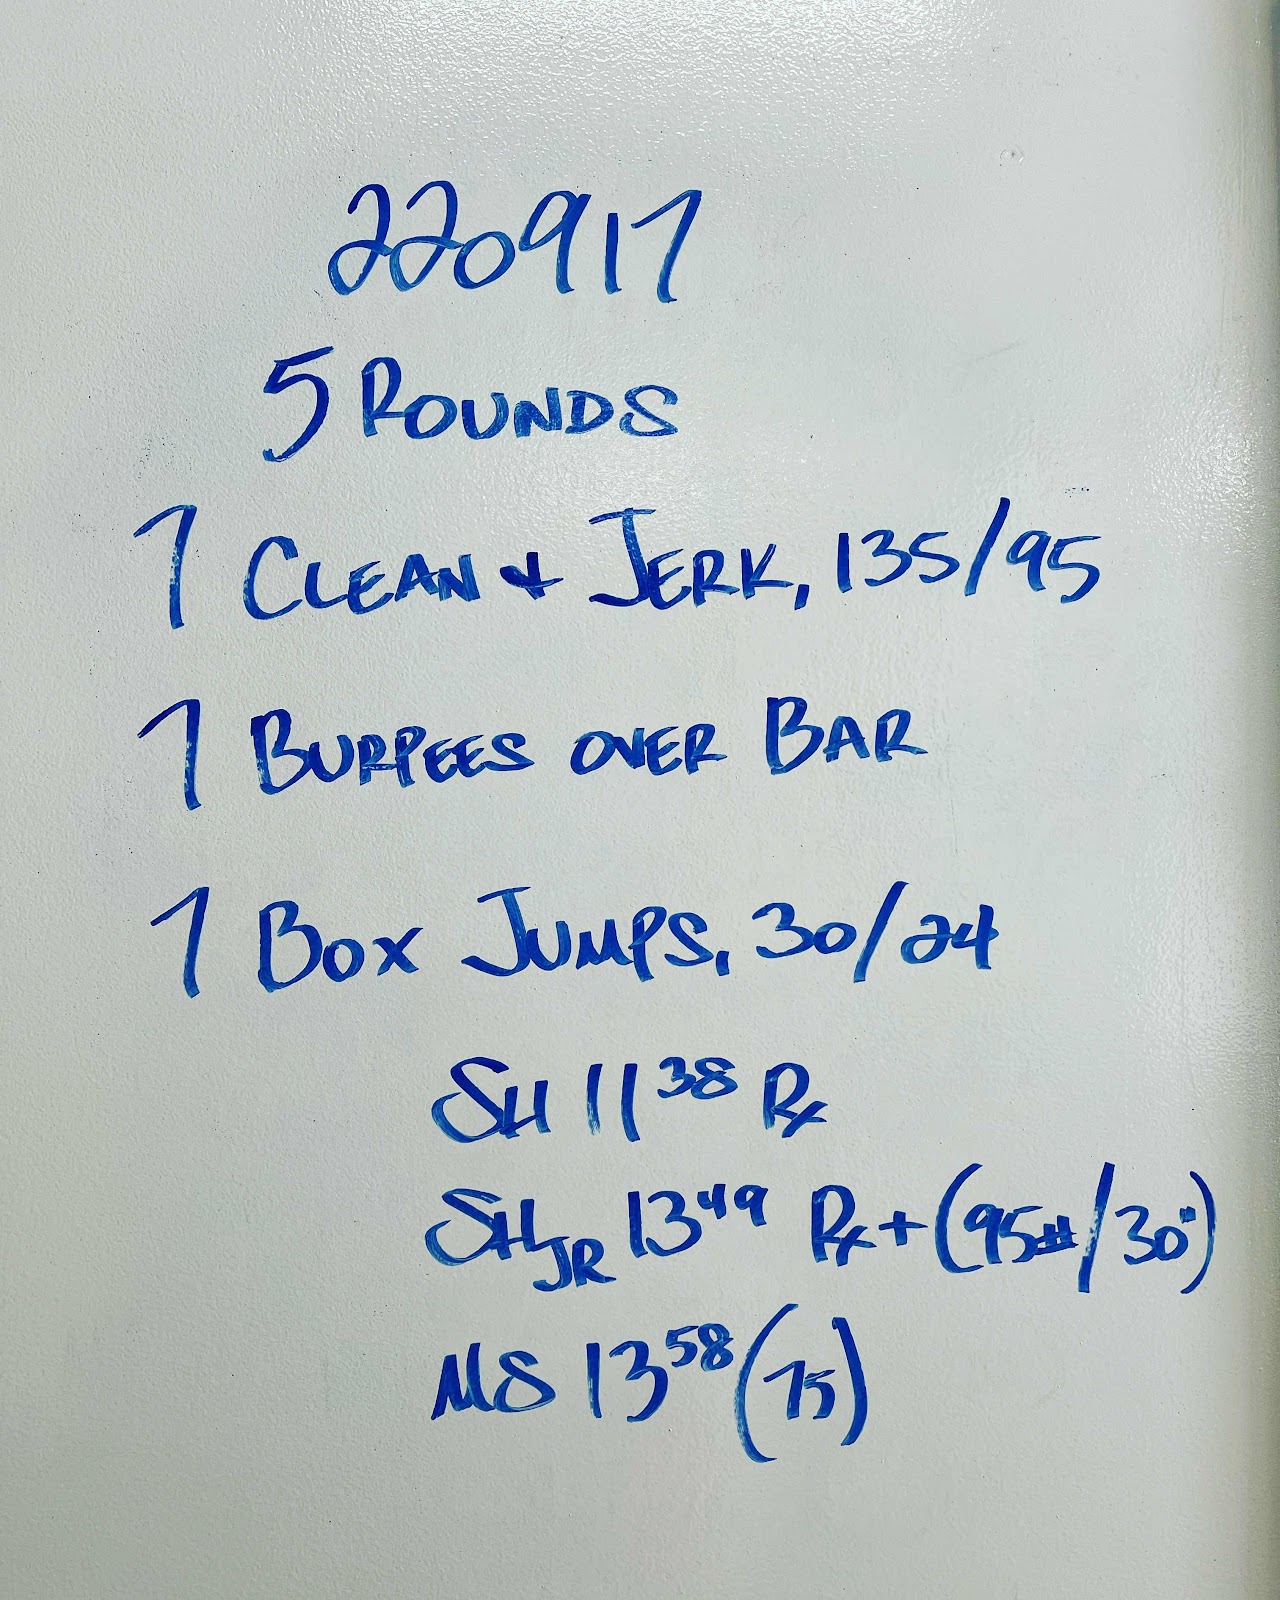 220917
5 ROUNDS
7 CLEAN & JERK, 135/95
7 BURPEES OVER BAR
7 BOX JUMPS, 30/24
SH 11 38 Rx
SH JR 13 49 Rx+ (95#/30")
MS 13 58 (75)